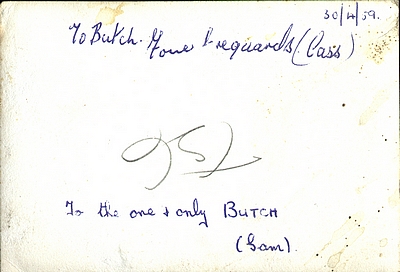 30/4/59.
To Butch. Youe & reguards (Cass)
To the one & only BUTCH
(Sam).